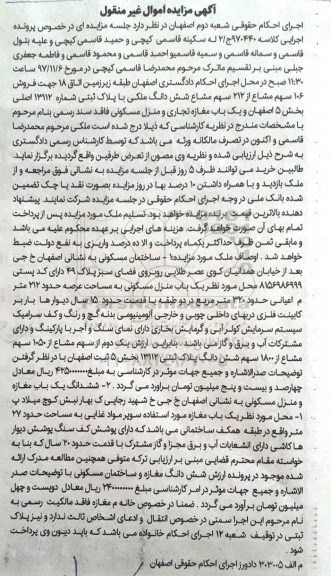 آگهی مزایده اموال غیر منقول
اجرای احکام حقوقی شعبه دوم اصفهان در نظر دارد جلسه مزایده ای در خصوص پرونده
اجرایی کلاسه ۹۷۰۴۴۰ج/۲ له سکینه قاسمی کیچی و حمید قاسمی کیچی و علیه بتول
قاسمی و سمانه قاسمی و سمیه قاسمیو احمد قاسمی و محمود قاسمی و فاطمه جعفری
جبلی مبنی بر تقسیم ماترک مرحوم محمدرضا قاسمی کیچی در مورخ ۹۷/۱۱/۶ ساعت
۱۱:۳۰ صبح در محل اجرای احکام دادگستری اصفهان طبقه زیرزمین اتاق ۱۸ جهت فروش
۱۰۶ سهم مشاع از ۲۱۲ سهم مشاع شش دانگ ملکی با پلاک ثبتی شماره ۱۳۱۱۲ اصلی
بخش ۵ اصفهان و یک باب مغازه تجاری و منزل مسکونی فاقد سند رسمی بنام مرحوم
با مشخصات مندرج در نظریه کارشناسی که ذیلا درج شده است ملکی مرحوم محمدرضا
قاسمی و اکنون در تصرف مالکانه ورثه می باشد که توسط کارشناس رسمی دادگستری
به شرح ذیل ارزیابی شده و نظریه وی مصون از تعرض طرفین واقع گردیده برگزار نماید.
طالبین خرید می توانند ظرف ۵ روز قبل از جلسه مزایده به نشانی فوق مراجعه و از
ملک بازدید و با همراه داشتن ۱۰ درصد بها در روز مزایده بصورت نقد یا چک تضمین
شده بانک ملی در وجه اجرای احکام حقوقی در جلسه مزایده شرکت نمایند. پیشنهاد
دهنده بالاترین قیمت برنده مزایده خواهد بود. تسلیم ملک مورد مزایده پس از پرداخت
تمام بهای آن صورت خواهد گرفت. هزینه های اجرایی بر عهده محکوم علیه می باشد
و مابقی ثمن ظرف حداکثر یکماه پرداخت و الا ده درصد واریزی به نفع دولت ضبط
خواهد شد. اوصاف ملک مورد مزایده: ۱- ساختمان مسکونی به نشانی اصفهان خ جی
بعد از خیابان همدانیان کوی عصر طلایی روبروی فضای سبز پلاک ۴۹ دارای کد پستی
۸۱۵۶۹۸۶۹۹۹ محل مورد نظر یک باب منزل مسکونی به مساحت عرصه حدود ۲۱۲ متر
م اعیانی حدود ۳۲۰ متر مربع در دو طبقه با قدمت حدود ۱۵ سال دیوار ها با بر
کابینت فلزی دربهای داخلی چوبی و خارجی آلومینیومی بدنه گچ و رنگ و کف سرامیک
سیستم سرمایش کولر آبی و گرمایش بخاری دارای نمای سنگ و آجر با پارکینگ و دارای
مشترکات آب و برق و گاز می باشد. بنابراین ارزش یک دوم از سهم مشاع از ۱۰۵۰ سهم
مشاع از ۱۸۰۰ سهم شش دانگ پلاک ثبتی ۱۳۱۱۲ بخش ۵ ثبت اصفهان با در نظر گرفتن
توضیحات صدرالاشاره و جمیع جهات موثر در کارشناسی به مبلغ ۴۲۵۰۰۰۰۰۰۰ ریال معادل
چهارصد و بیست و پنج میلیون تومان برآورد می گردد. ۲- ششدانگ یک باب مغازه
و منزل مسکونی به نشانی اصفهان خ جی خ شهید رجایی ک بهار نبش کوچ میلاد پ
۱- محل مورد نظر یک باب مغازه مورد استفاده سوپر مواد غذایی به مساحت حدود ۲۷
متر واقع در طبقه همکف ساختمانی می باشد که دارای پوشش کف سنگ پوشش دیوار
ها کاشی دارای انشعابات آب و برق مجزا و گاز مشترک با قدمت حدود ۲۰ سال که بنا به
خواسته مقام محترم قضایی مبنی بر ارزیابی ترکه متوفی همچنین مطالعه مدرک ارائه
شده موجود در پرونده ارزش شش دانگ مغازه و ساختمان مسکونی با توضیحات صدر
الاشاره و جمیع جهات موثر در امر کارشناسی مبلغ ۲۴۰۰۰۰۰۰۰۰ ریال معادل دویست و چهل
میلیون تومان برآورد می گردد. ضمنا در خصوص خانه م مغازه فاقد مالکیت رسمی به
نام مرحوم این اجرا سمتی در خصوص انتقال و ادعای اشخاص ثالث ندارد و نیز پلاک
ثبتی در توقیف شعبه ۱۲ اجرای احکام خانواده می باشد که باید دیون وی پرداخت
شود.
م الف ۳۰۳۰۰۵ دادورز اجرای احکام حقوقی اصفهان